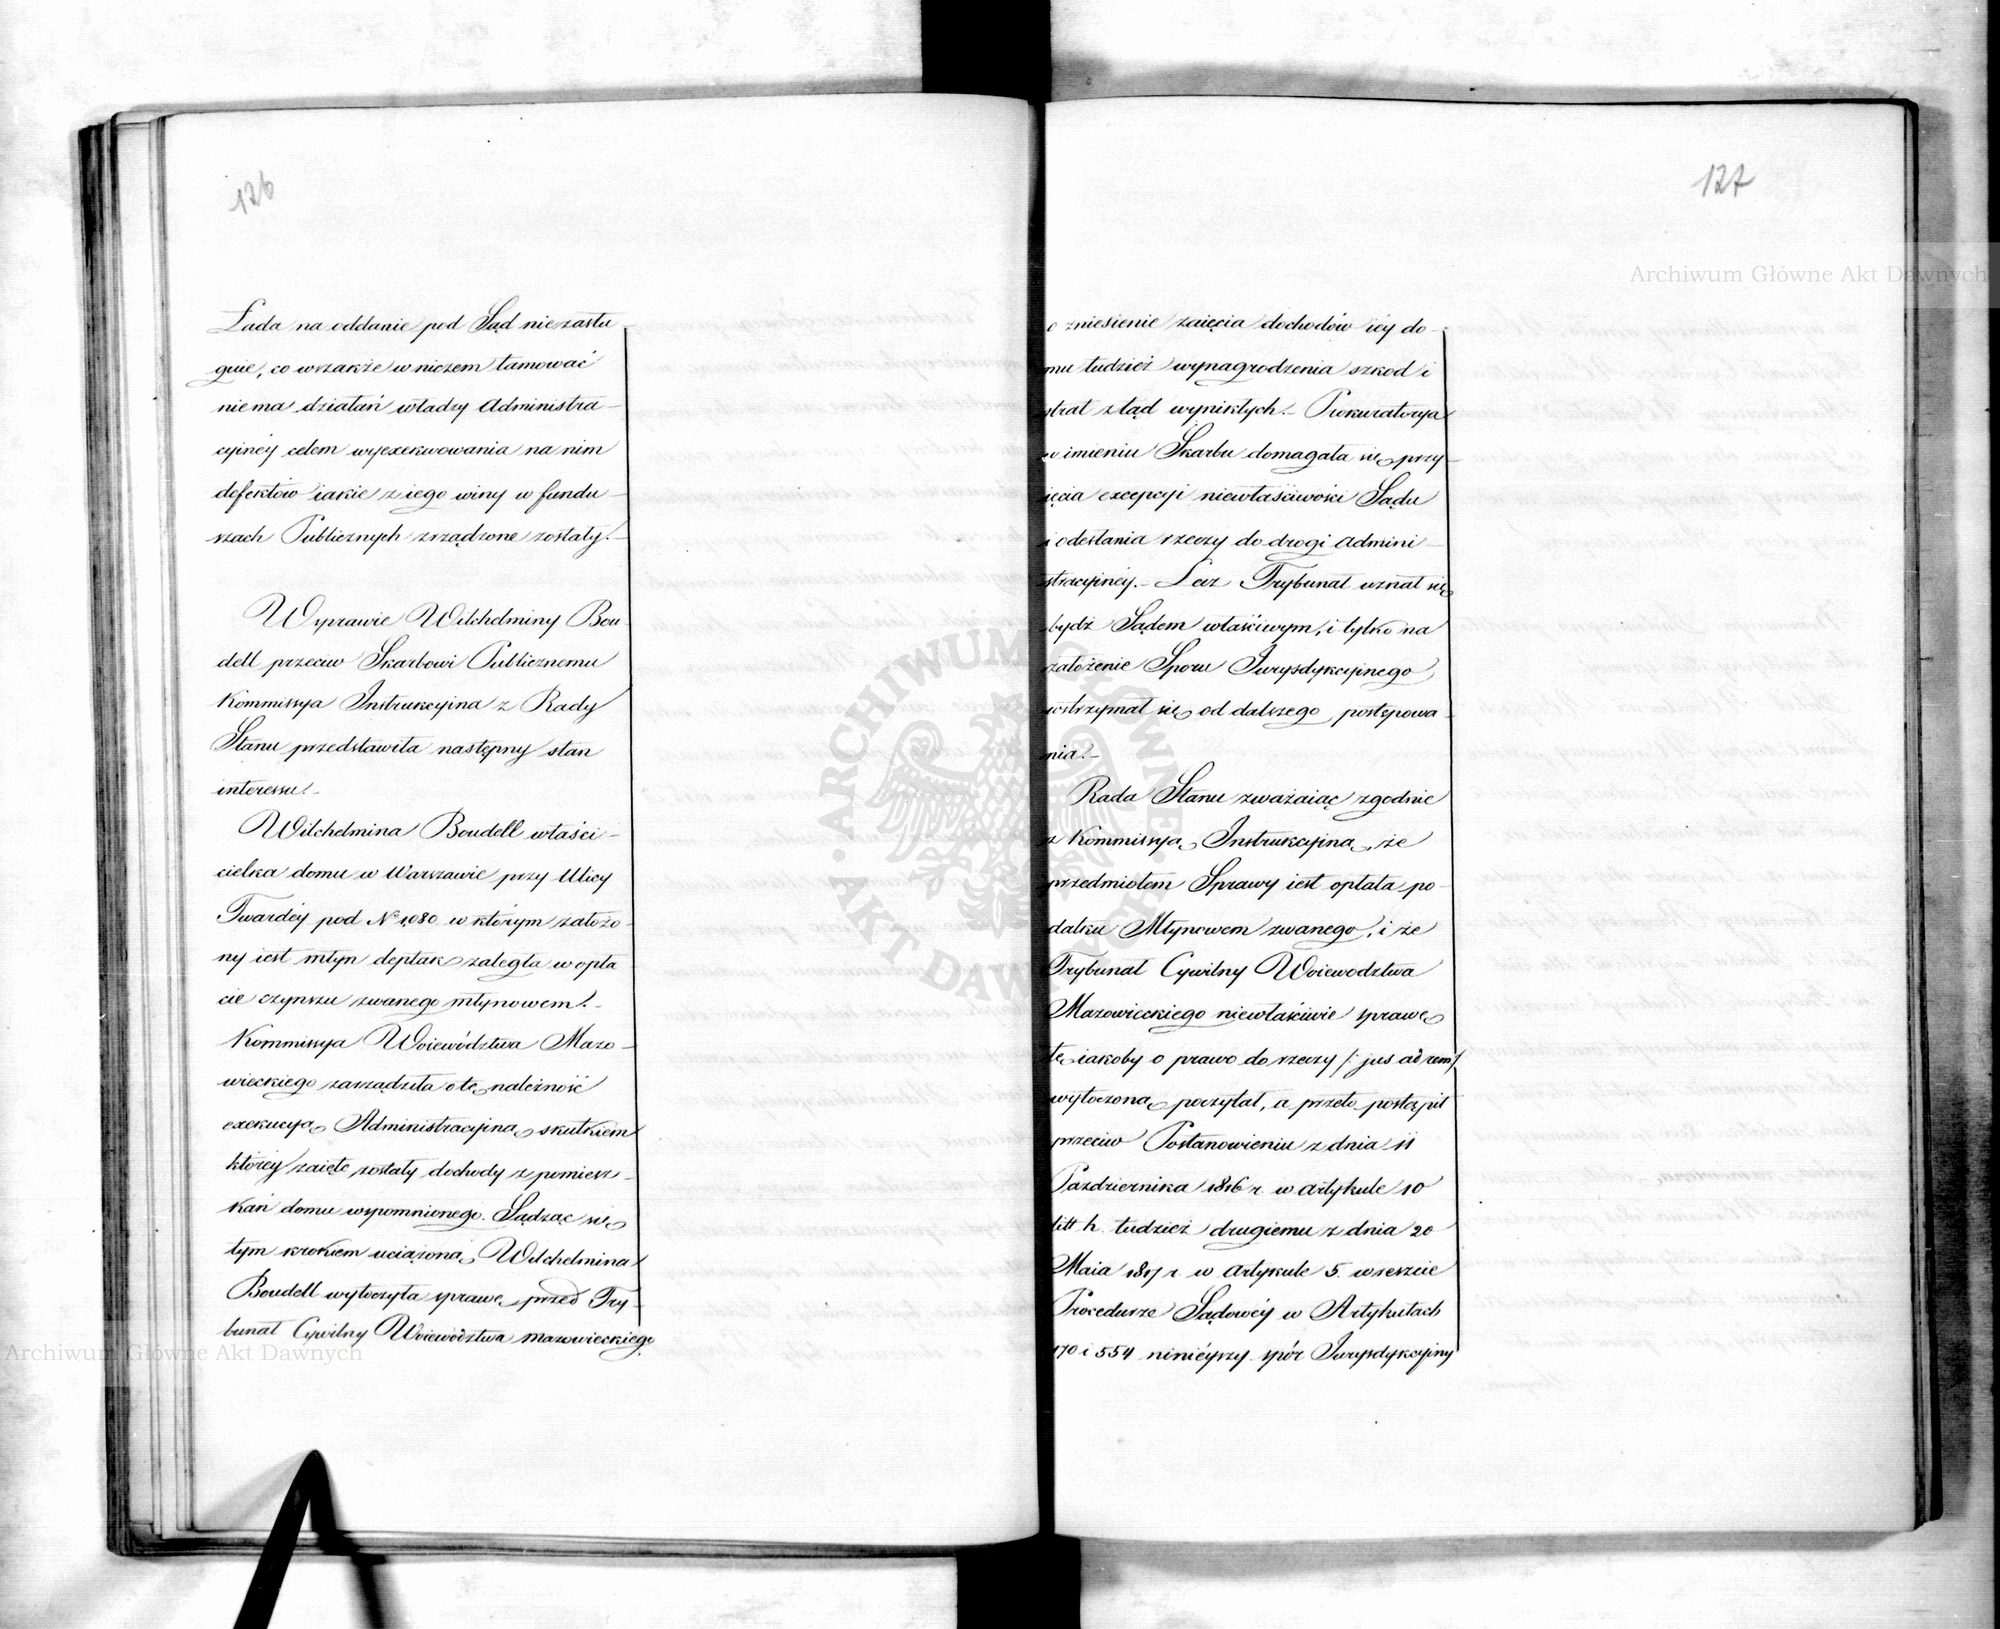 126
Lada na oddanie pod Sąd niezasłu
guie, co wszakże w niczem tamować
niema działań władzy Administra-
cyinéy celem wyexekwowania na nim
defektów iakie z iego winy w fundu-
szach Publicznych zrządzone zostały.-
W sprawie Wilchelminy Bou
dell przeciw Skarbowi Publicznemu
Kommissya Instrukcyina z Rady
Stanu przedstawiła następny stan
interessu.-
Wilchelmina Boudell właści-
cielka domu w Warszawie przy Ulicy
Twardéy pod No 1080 w którym założo-
ny iest młyn deptak zaległa w opła
cie czynszu zwanego młynowem.-
Kommissya Woiewództwa Mazo-
wieckiego zarządziła o tę należność
exekucyą Administracyiną skutkiem
któréy zaięte zostały dochody z pomiesz-
kań domu wspomnionego. Sądząc się
tym krokiem uciążoną, Wilchelmina
Boudell wytoczyła sprawę przed Try-
bunał Cywilny Woiewództwa Mazowieckiego
127
o zniesienie zaięcia dochodów iéy do-
mu tudzież wynagrodzenia szkod i
strat ztąd wynikłych.- Prokuratorya
w imieniu Skarbu domagała się przy-
ięcia excepcyi niewłaściwości Sądu
i odesłania rzeczy do drogi Admini-
stracyinéy.- Lecz Trybunał uznał się
bydź Sądem właściwym, i tylko na
założenie Sporu Jurysdykcyinego
wstrzymał się od dalszego postępowa-
nia.-
Rada Stanu zważaiąc zgodnie
z Kommissyą Instrukcyiną, że
przedmiotem Sprawy iest opłata po-
datku Młynowem zwanego, i że
Trybunał Cywilny Woiewodztwa
Mazowieckiego niewłaściwie sprawę
tę iakoby o prawo do rzeczy /: jus ad rem /
wytoczoną poczytał, a przeto postąpił
przeciw Postanowieniu z dnia 11
Października 1816 r. w artykule 10
litt h. tudzież drugiemu z dnia 20
Maia 1817 r. w Artykule 5. wreszcie
Procedurze Sądowéy w Artykułach
170 i 554 ninieyszy spór Jurysdykcyiny
Archiwum Główne Akt Dawnych
Archiwum Główne Akt Dawnych
ARCHIWUM GŁÓWNE · AKT DAWNYCH ·